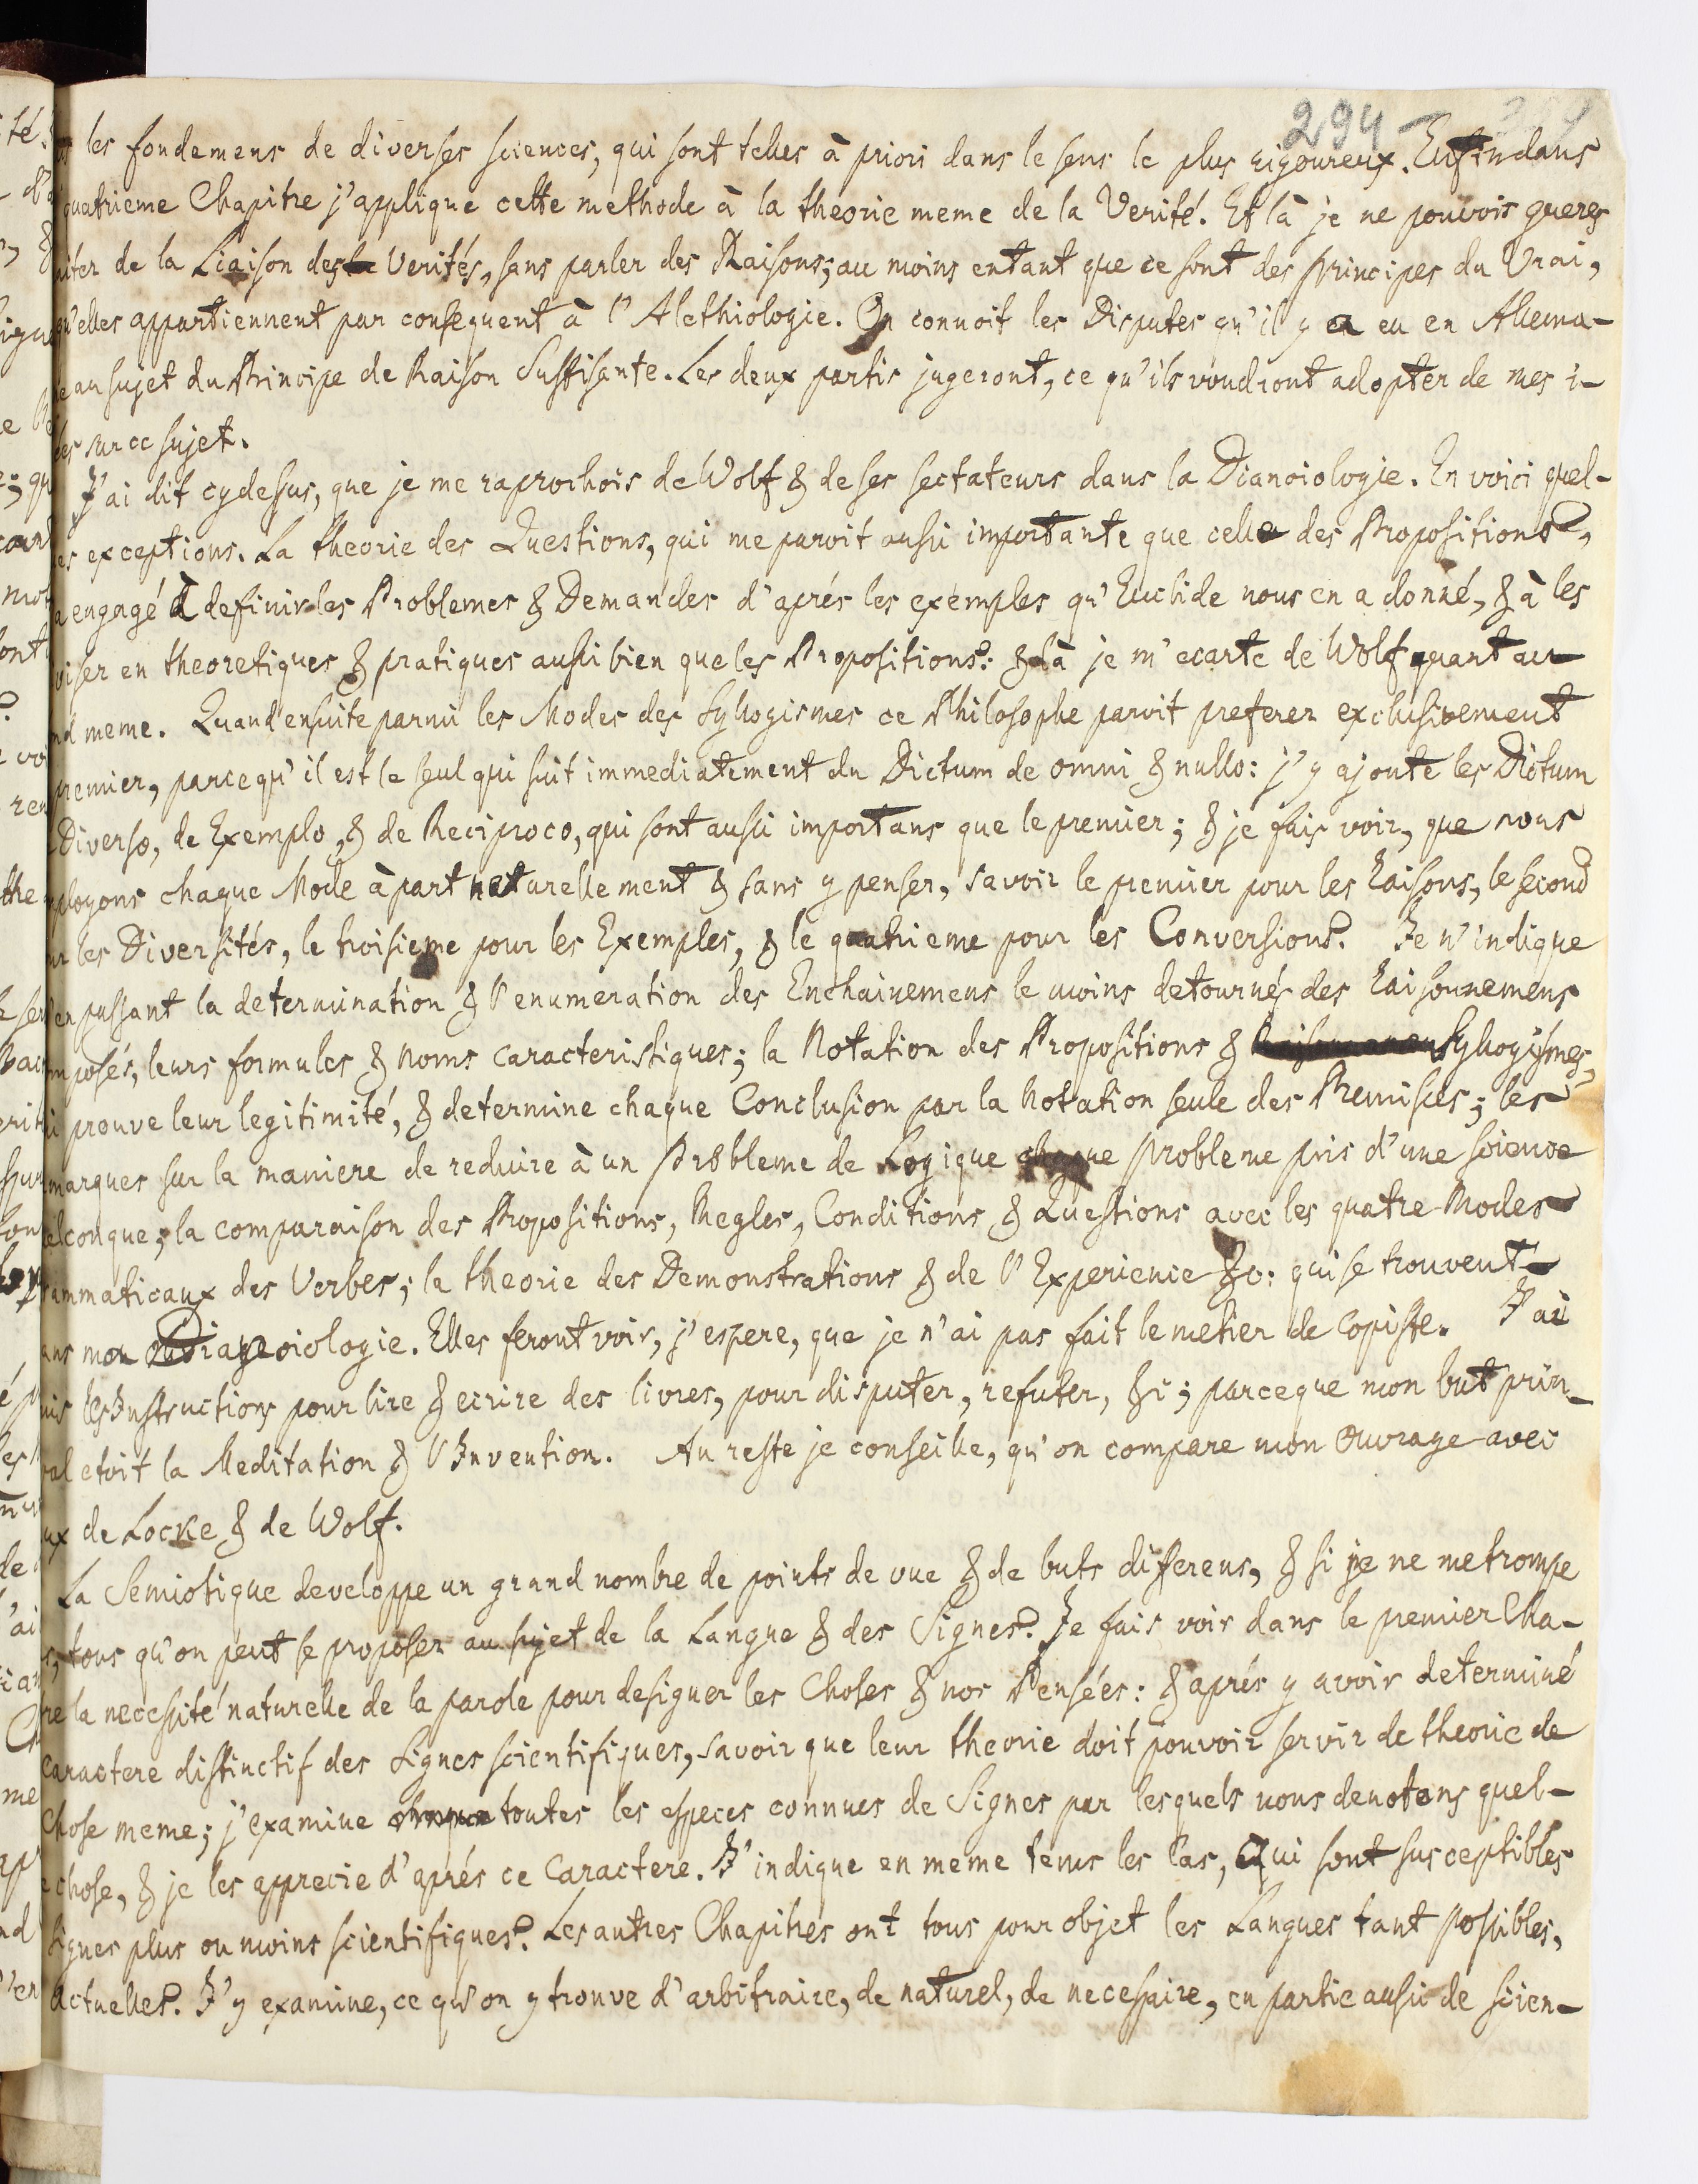 294
les fondemens de diverses sciences, qui sont telles à priori dans le sens le plus rigoureux. Enfin dans
quatrieme Chapitre j'applique cette methode à la theorie meme de la Verité. Et là je ne pouvois gueres
iter de la Liaison des Verités, sans parler des Raisons; au moins entant que ce sont des principes du Vrai,
qu'elles appartiennent par consequent à l'Alethiologie. On connoit les Disputes qu'il y a eu en Allema-
e au sujet du Principe de Raison Suffisante. Les deux partis jugeront, ce qu'ils voudront adopter de mes i-
ées sur ce sujet.
J'ai dit cydessus, que je me raprochois de Wolf & de ses sectateurs dans la Dianoiologie. En voici quel-
es exceptions. La theorie des Questions, qui me paroit aussi importante que celle des Propositions,
a engagé à definir les Problemes & Demandes d'aprés les exemples qu'Euclide nous en a donné, & à les
viser en theoretiques & pratiques aussi bien que les Propositions: & là je m'ecarte de Wolf quant au
nd meme. Quand ensuite parmi les Modes des Syllogismes ce Philosophe paroit preferer exclusivement
premier, parcequ'il est le seul qui suit immediatement du Dictum de omni & nullo: j'y ajoute les Dictum
Diverso, de Exemplo, & de Reciproco, qui sont aussi importans que le premier; & je fais voir, que nous
ployons chaque Mode à part naturellement & sans y penser, savoir le premier pour les Raisons, le second
ur les Diversités, le troisieme pour les Exemples, & le quatrieme pour les Conversions. Je n'indique
en passant la determination & l'enumeration des Enchainemens le moins detournés des Raisonnemens
mposés, leurs formules & noms caracteristiques; la Notation des Propositions & Syllogismes,
i prouve leur legitimité, & determine chaque Conclusion par la Notation seule des Premisses; les
marques sur la maniere de reduire à un Probleme de Logique chaque probleme pris d'une science
elconque; la comparaison des Propositions, Regles, Conditions & Questions avec les quatre Modes
rammaticaux des Verbes; la theorie des Demonstrations & de l'Experience &c: qui se trouvent
ans mon Dianoiologie. Elles feront voir, j'espere, que je n'ai pas fait le metier de Copiste. J'ai
mis les Instructions pour lire & ecrire des livres, pour disputer, refuter, &c; parceque mon but prin-
pal etoit la Meditation & l'Invention. Au reste je conseille, qu'on compare mon Ouvrage avec
ux de Locke & de Wolf.
La Semiotique developpe un grand nombre de points de vue & de buts differens, & si je ne me trompe
s, tous qu'on peut se proposer au sujet de la Langue & des Signes. Je fais voir dans le premier Cha-
tre la necessité naturelle de la parole pour designer les Choses & nos Pensées: & aprés y avoir determiné
caractere distinctif des Signes scientifiques, savoir que leur theorie doit pouvoir servir de theorie de
chose meme; j'examine toutes les especes connues de Signes par lesquels nous denotons quel-
e chose, & je les apprecie d'aprés ce Caractere. J'indique en meme tems les Cas, qui sont susceptibles
Signes plus ou moins scientifiques. Les autres Chapitres ont tous pour objet les Langues tant possibles,
actuelles. J'y examine, ce qu'on y trouve d'arbitraire, de naturel, de necessaire, en partie aussi de scien-